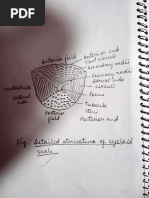 Anterior field
Anterior end
cent icones
secondary radii
Primary radii
Ventral side
dorsal side
circuli
lateral side
Focus
Tubercle
Posterior field
Posterior end
Fig:- Detailed structure of cycloid
scale